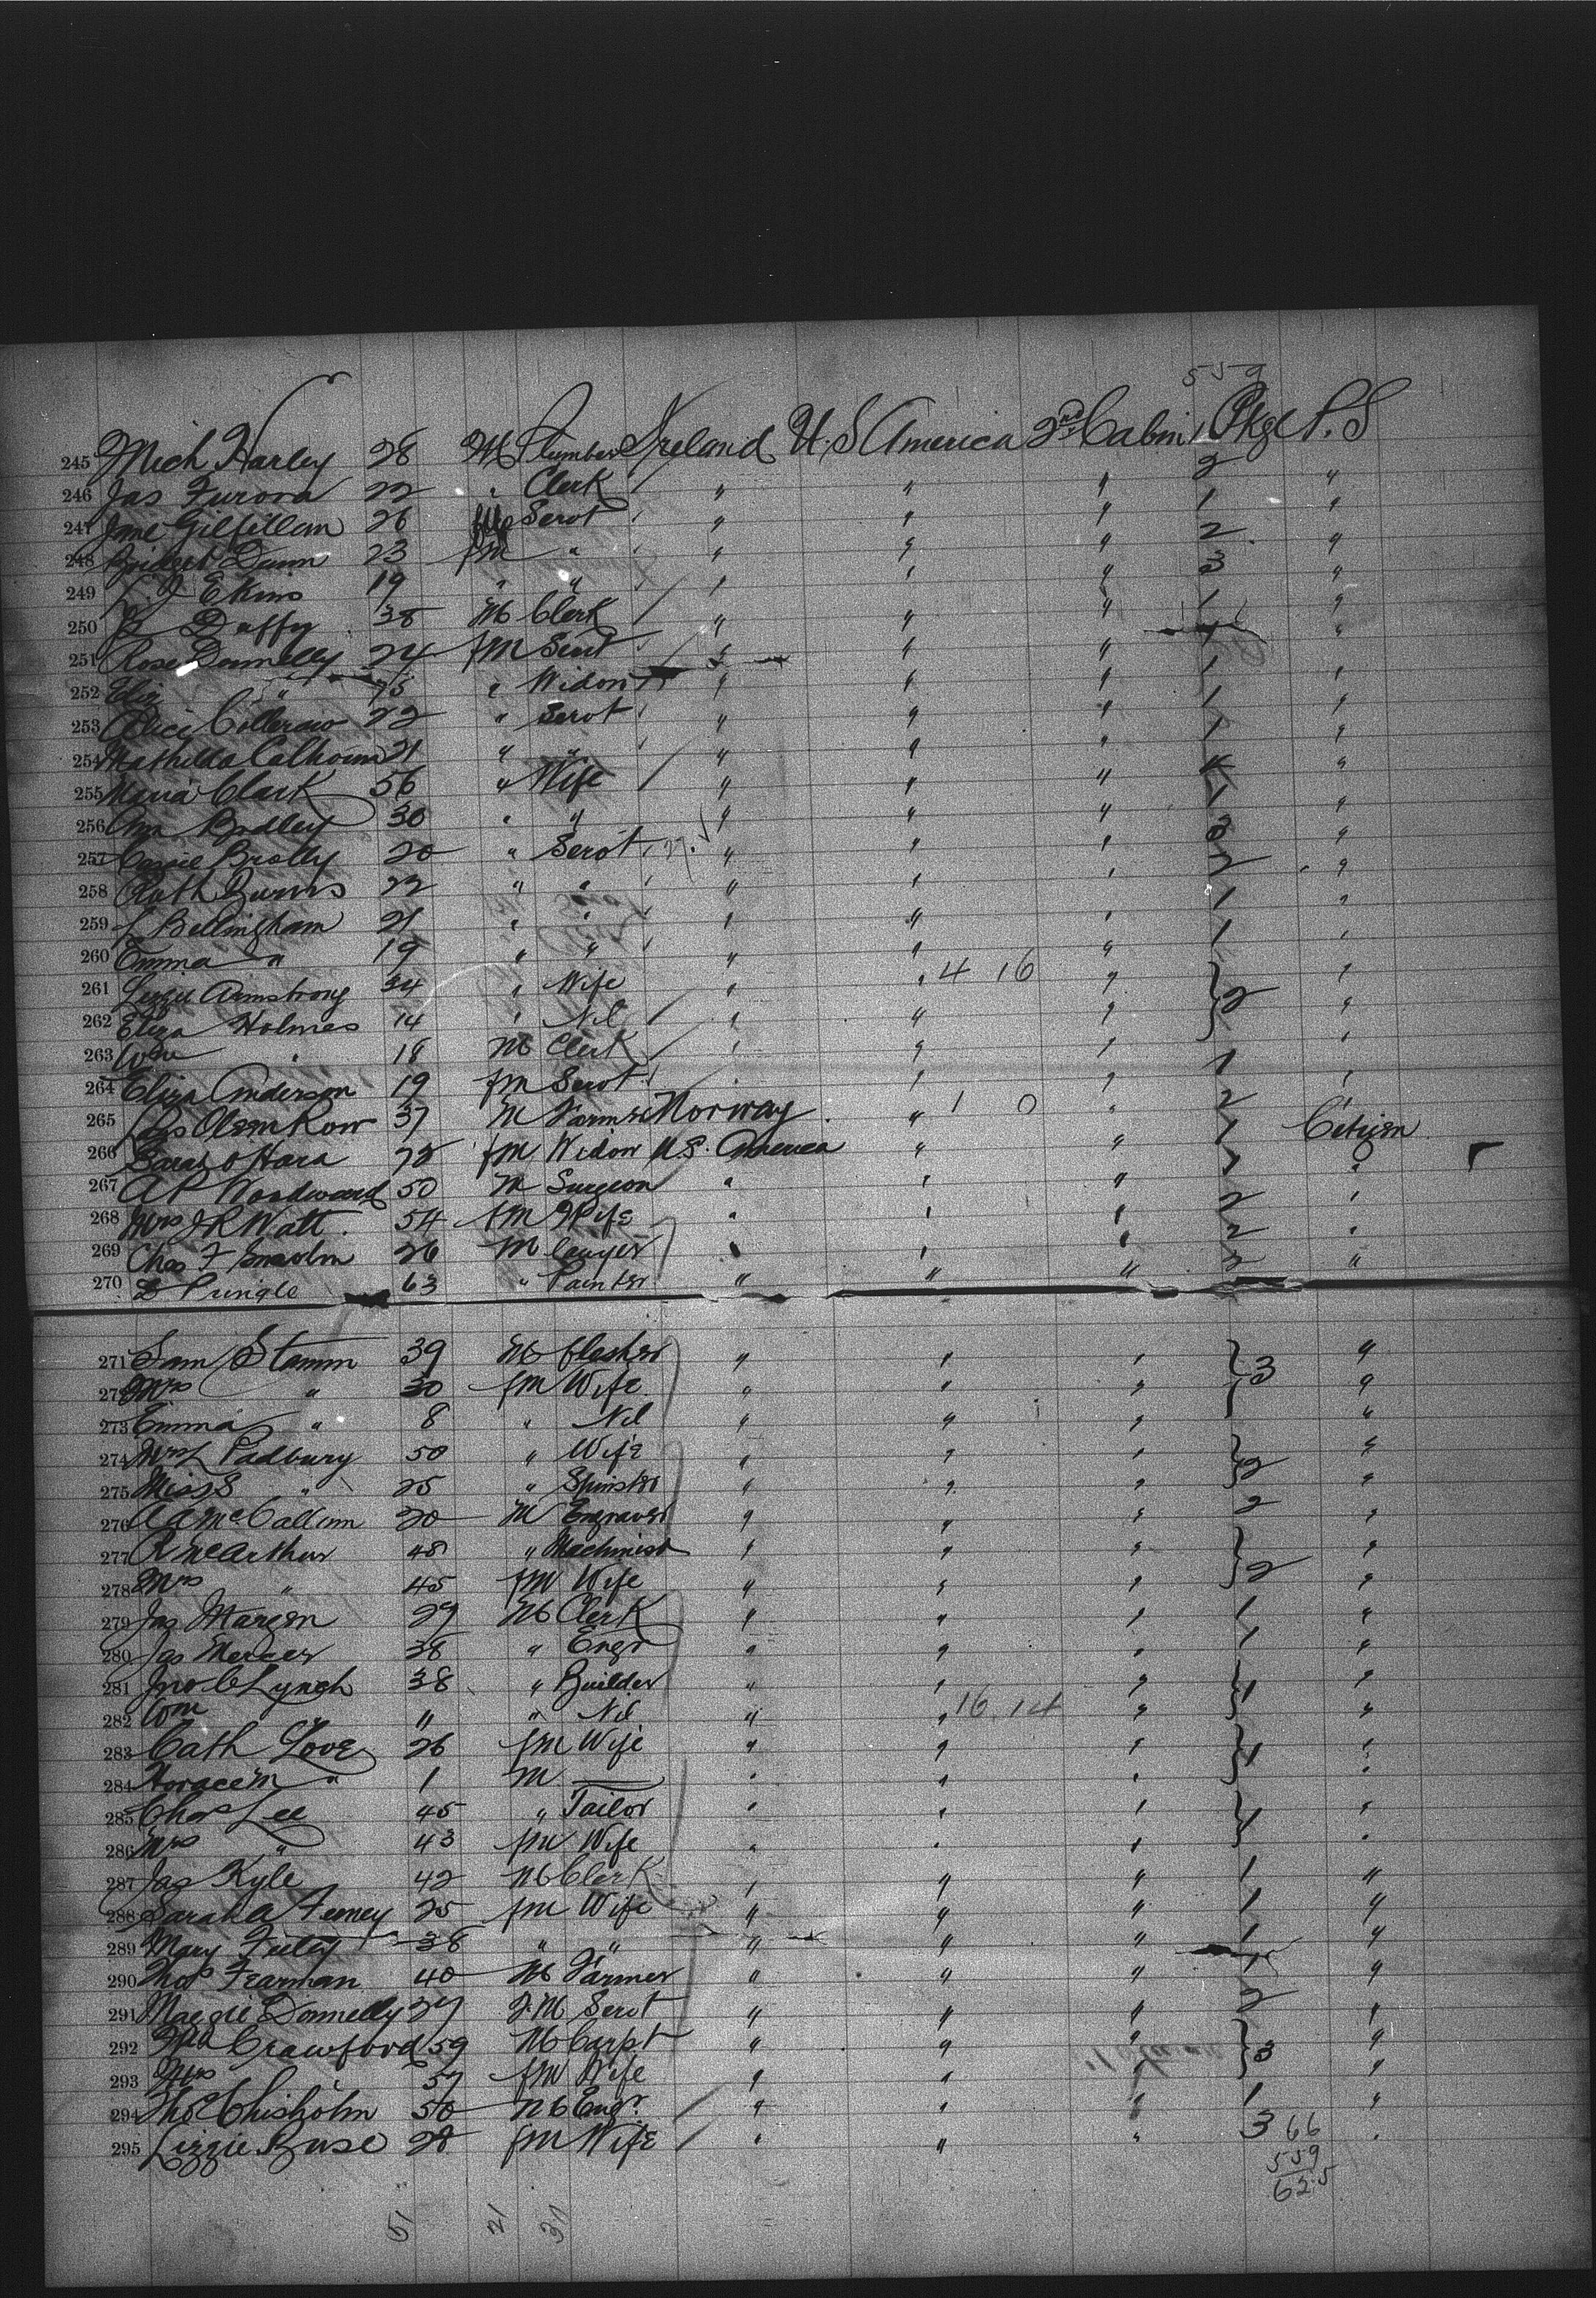 559
245 Mich Harley 28 M Plumber Ireland U.S America 2nd Cabin 1 Pkge P.S
246 Jas Furova 22 " Clerk " " " 2 "
247 Jane Gilfillan 26 Servt " " " 1 "
248 Bridget Dunn 23 fm " " " " 2 "
249 L J Ekins 19 " " " " " 3 "
250 P Duffy 38 M Clerk " " " 1 "
251 Rose Donnelly 24 fm Servt " " " 1 "
252 Eliz " 75 " Widow " " " 1 "
253 Alice 22 " Servt " " " 1 "
254 Mathilda Calhoun 21 " " " " " 1 "
255 Maria Clark 56 " Wife " " " "
256 Ann Bradley 30 " " " " " 1 "
257 Cassie Brolly 20 " Servt " " " 3 "
258 Cath Burns 22 " " " " " 2 "
259 L Bellingham 21 " " " " " 1 "
260 Emma " 19 " " " " " 1 "
261 Lizzie Armstrong 34 " Wife " " 4 16 " } 2 "
262 Eliza Holmes 14 " Nil " " " "
263 Wm " 18 M Clerk " " " "
264 Eliza Anderson 19 fm Servt " " " 1 "
265 Olsen Row 37 M Farmer Norway " 1 0 " 2 "
266 Sarah O Hara 75 fm Widow U.S. America " " 1 Citizen
267 A P Woodward 50 M Surgeon " " " 1 "
268 Mrs J R Watt 54 fm Wife " " " 2 "
269 Chas F 26 M Lawyer " " " 2 "
270 D Pringle 63 " Painter " " " 3 "
271 Sam Stamm 39 M flesher " " " } 3 "
272 Mrs " 30 fm Wife " " " "
273 Emma " 8 " Nil " " " "
274 Mrs L Padbury 50 " Wife " " " } 2 "
275 Miss S " 25 " Spinster " " " "
276 A A McCallum 20 M Engraver " " " 2 "
277 R McArthur 48 " Machinist " " " } 2 "
278 Mrs " 45 fm Wife " " " "
279 Jas 27 M Clerk " " " 1 "
280 Jas Mercer 38 " Engr " " " 1 "
281 Jno C Lynch 38 " Builder " " " } 1 "
282 Wm " 11 " Nil " " 16 14 " "
283 Cath Love 26 fm Wife " " " } 1 "
284 Horace M " 1 M — " " " "
285 Chas Lee 45 " Tailor " " " } 1 "
286 Mrs " 43 fm Wife " " " "
287 Jas Kyle 42 M Clerk " " " 1 "
288 Sarah A Feeney 25 fm Wife " " " 1 "
289 Mary Feeley 38 " " " " " 1 "
290 Thos Fearman 40 M Farmer " " " 1 "
291 Maggie Donnelly 27 F.M Servt " " " 2 "
292 Wm Crawford 59 M Carpt " " " } 3 "
293 Mrs " 57 fm Wife " " " "
294 Thos Chisholm 50 M Engr. " " " 1 "
295 Lizzie Buse 28 fm Wife " " " 3 "
66
559
625
51 21 30